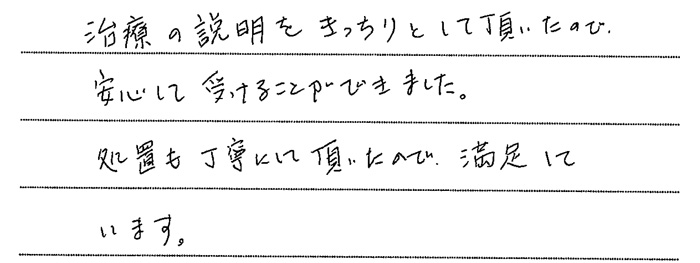 治療の説明をきっちりとして頂いたので、
安心して受けることができました。
処置も丁寧にして頂いたので、満足して
います。